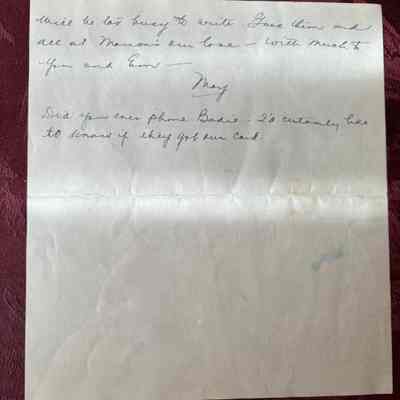 will be too busy to write Give them and
all at Mamma's our love – with much to
you and
May
Did you ever phone Badie – I'd certainly like
to know if they got our card.